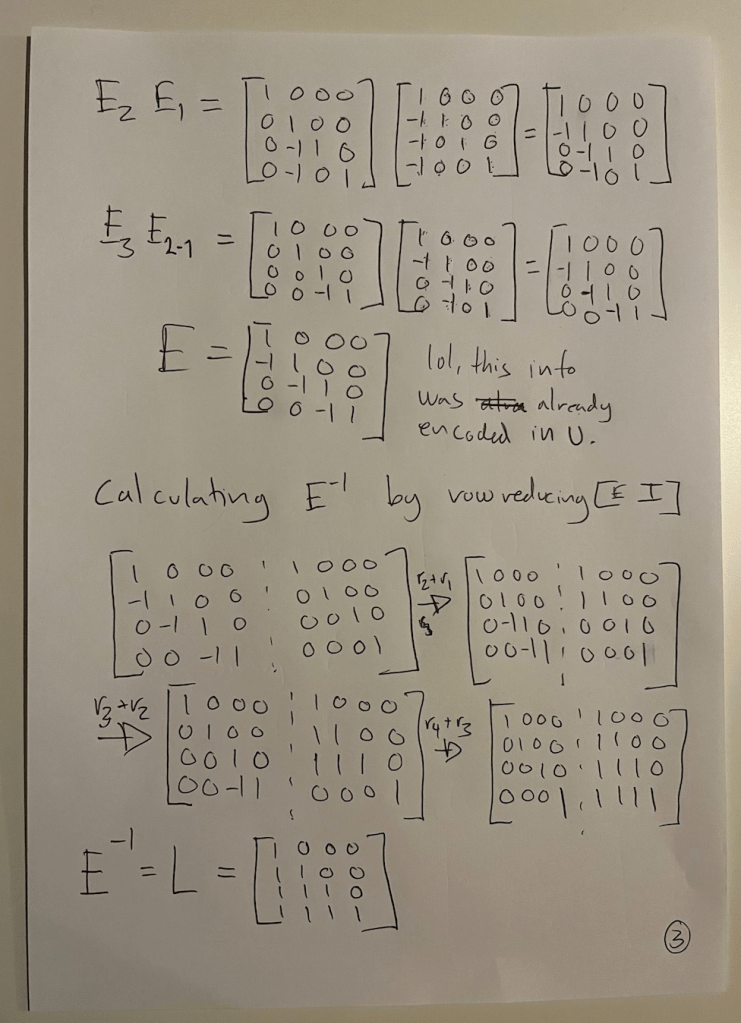 E2 E1 = [1 0 0 0 [1 0 0 0 = [1 0 0 0
0 1 0 0 -1 1 0 0 -1 1 0 0
0 -1 1 0 -1 0 1 0 0 -1 1 0
0 -1 0 1] -1 0 0 1] 0 -1 0 1]
E3 E2-1 = [1 0 0 0 [1 0 0 0 = [1 0 0 0
0 1 0 0 -1 1 0 0 -1 1 0 0
0 0 1 0 0 -1 1 0 0 -1 1 0
0 0 -1 1] 0 -1 0 1] 0 0 -1 1]
E = [1 0 0 0
-1 1 0 0
0 -1 1 0
0 0 -1 1]
lol, this info
was already
encoded in U.
Calculating E^-1 by row reducing [E I]
[1 0 0 0 ⋮ 1 0 0 0 r2+r1 → [1 0 0 0 ⋮ 1 0 0 0
-1 1 0 0 ⋮ 0 1 0 0 0 1 0 0 ⋮ 1 1 0 0
0 -1 1 0 ⋮ 0 0 1 0 0 -1 1 0 ⋮ 0 0 1 0
0 0 -1 1 ⋮ 0 0 0 1] 0 0 -1 1 ⋮ 0 0 0 1]
r3+r2 → [1 0 0 0 ⋮ 1 0 0 0 r4+r3 → [1 0 0 0 ⋮ 1 0 0 0
0 1 0 0 ⋮ 1 1 0 0 0 1 0 0 ⋮ 1 1 0 0
0 0 1 0 ⋮ 1 1 1 0 0 0 1 0 ⋮ 1 1 1 0
0 0 -1 1 ⋮ 0 0 0 1] 0 0 0 1 ⋮ 1 1 1 1]
E^-1 = L = [1 0 0 0
1 1 0 0
1 1 1 0
1 1 1 1]
3